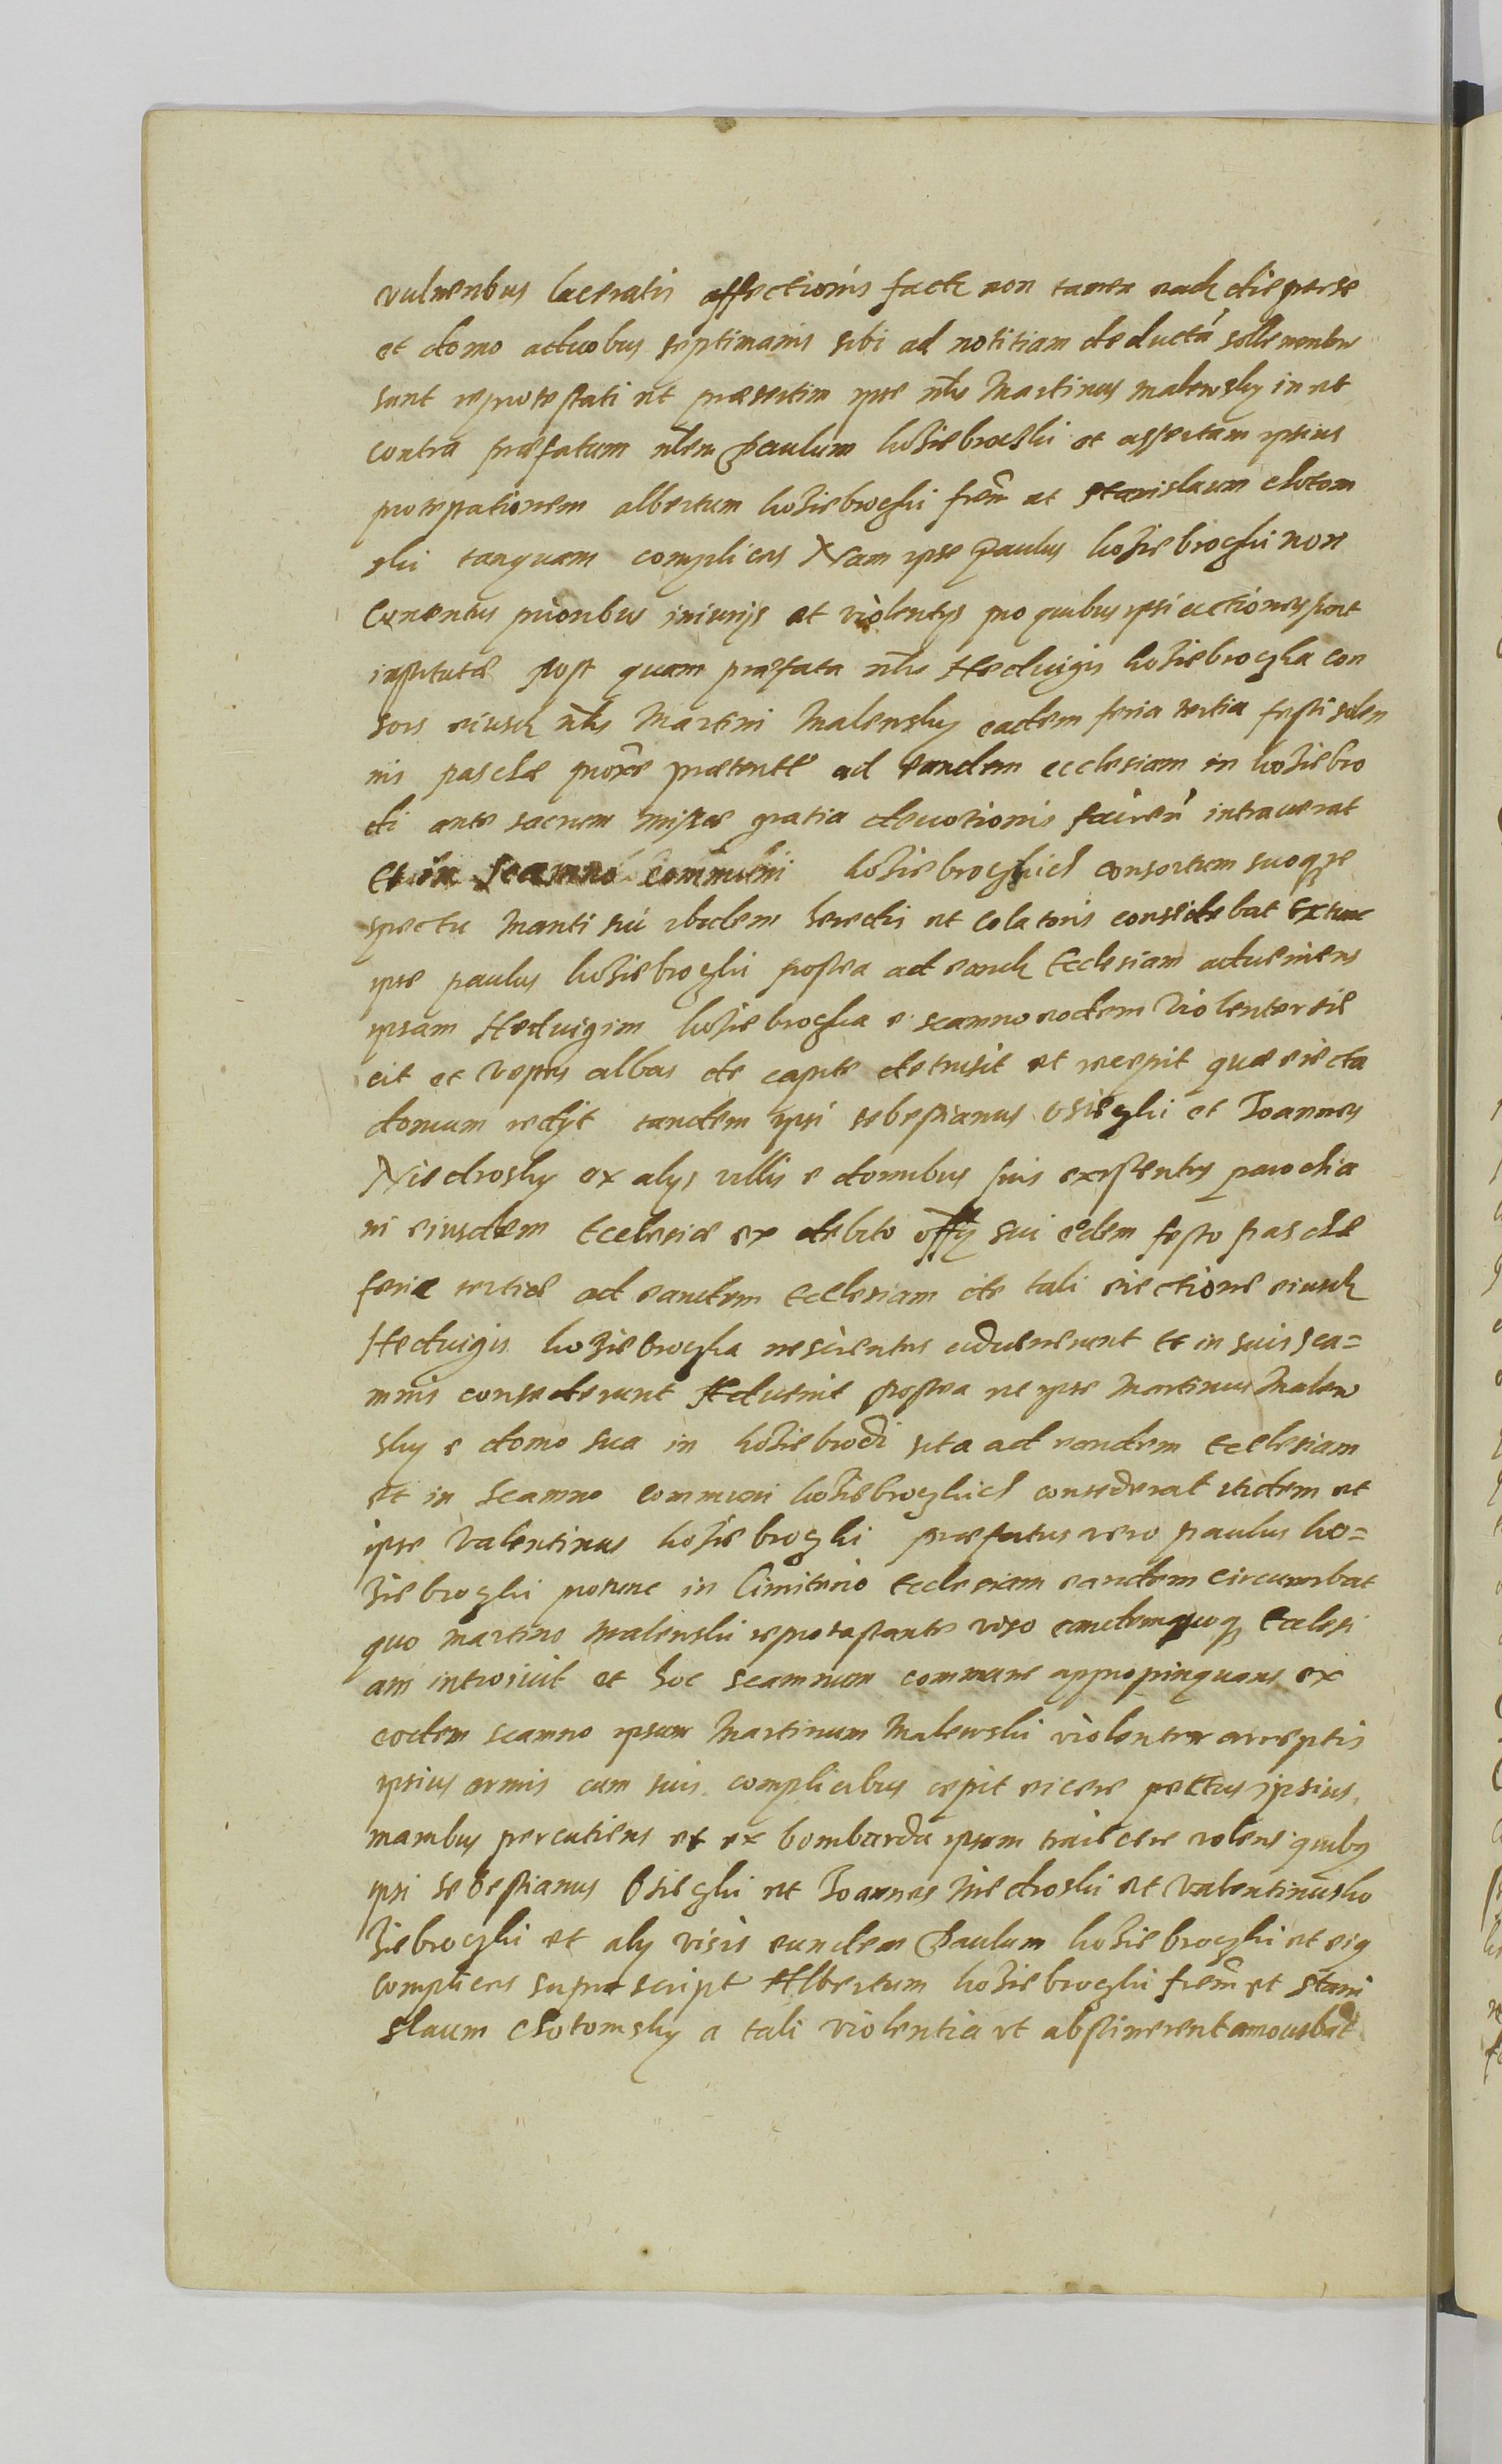 vulneribus laceratis affectionis facte non tamen eade die per se
et domo a duobus septimanis sibi ad notitiam deducta sollenniter
sunt reprotestati et praesertim ipse nlis Martinus Malewsky in et
contra praefatum nlem Paulum koziebroczki et assertam ipsius
protestationem albertum koziebroczki frem et Stanislaum chotom
ski tanquam complices Nam ipse Paulus koziebroczki non
contentus prioribus iniurijs et violentijs pro quibus ipsi actiones sunt
institutae post quam praefata nlis Heduigis koziebroczka con
sors eiusd nlis Martini Malewsky eadem feria tertia festi solen
nis paschae ad eandem ecclesiam in koziebro
di ante sacrum missae gratia deuotionis intrauerat
Et in scamno communi koziebroczkich consortum suo q re
spectu Mariti sui ibidem heredis et colatoris considebat Ex tunc
ipse paulus koziebroczki postea ad eand Ecclesiam adueniens
ipsam Heduigim koziebroczka e scamno eodem violenter eie
cit et vestes albas de capite detrusit et recepit quae eiecta
domum redijt tandem ipsi sebestianus Osieczki et Joannes
Niedrosky ex alijs villis e domibus suis existentes parochia
ni eiusdem Ecclesiae ex debito offij sui eodem festo paschae
feriae tertiae ad eandem Ecclesiam de tali eiectione eiusd
Heduigis koziebroczka nescientes aduenerunt et in suis sca=
mnis consederunt Aduenit postea et ipse Martinus Malew
sky e domo sua in koziebrodi sita ad eandem Ecclesiam
et in scamno communi koziebroczkich consederat ibidem et
ipse Valentinus koziebroczki praefatus vero paulus ko=
ziebroczki pro tunc in Cimiterio Ecclesiam eandem circumibat
quo Martino Malewski reprotestante viso eandem quoq Ecclesi
am introiuit et hoc scamnum commune appropinquans ex
eodem scamno ipsum Martinum Malewski violenter arreptis
ipsius armis cum suis complicibus cepit eicere pectus ipsius
manibus percutiens et ex bombarda ipsum traiicere volens quibus
ipsi sebestianus Osieczki et Joannes Niedroski et Valentinus ko
ziebroczki et alij visis eundem Paulum koziebroczki et eiq
complices supra script Albertum koziebroczki frem et Stani
slaum Chotomsky a tali violentia ut abstinerent amouebat